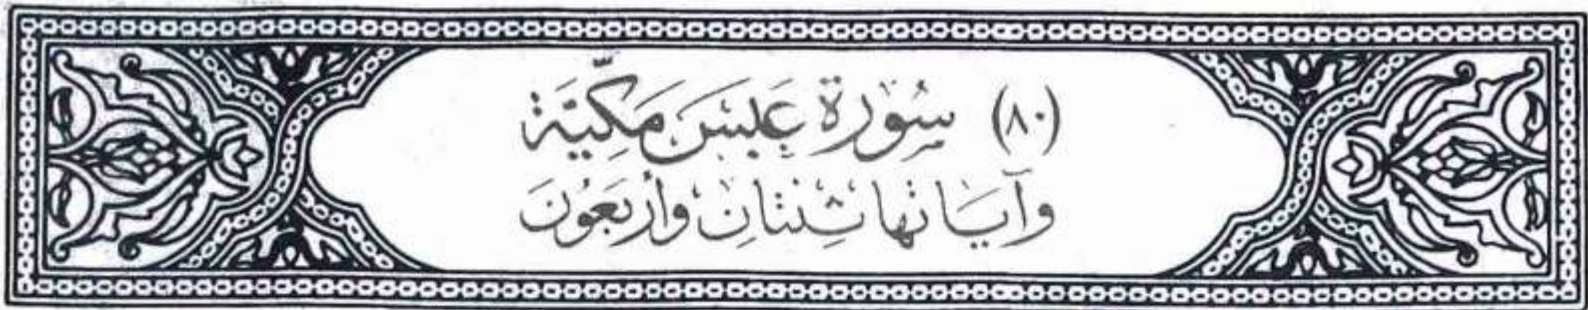 (٨٠) سُورَة عَبَسَ مَكِّيَّة
وَآيَاتهَا ثِنْتَانِ وَأَرْبَعُونَ